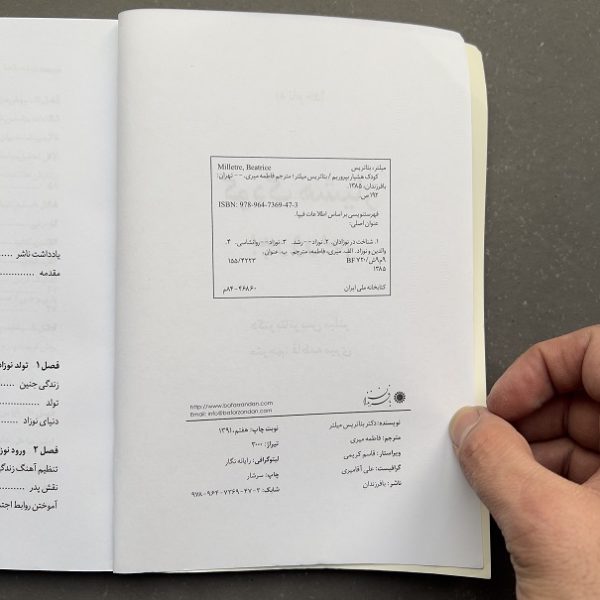 میلتر، بئاتریس Milletre, Beatrice
کودک هشیار بپروریم / بئاتریس میلتر؛ مترجم فاطمه میری. -- تهران:
بافرزندان، ۱۳۸۵.
۱۹۲ ص.
ISBN: 978-964-7369-47-3
فهرستنویسی بر اساس اطلاعات فیپا.
عنوان اصلی:
۱. شناخت در نوزادان. ۲. نوزاد -- رشد. ۳. نوزاد -- روانشناسی. ۴.
والدین و نوزاد. الف. میری، فاطمه، مترجم. ب. عنوان.
۱۵۵/۴۲۲۳ BF ۷۲۰/
۱۳۸۵
کتابخانه ملی ایران ۴۶۸۶۰-۸۴م
بافرزندان
http://www.bafarzandan.com
Email: info@bafarzandan.com
نویسنده: دکتر بئاتریس میلتر
مترجم: فاطمه میری
ویراستار: قاسم کریمی
گرافیست: علی آقامیری
ناشر: بافرزندان
نوبت چاپ: هفتم، ۱۳۹۱
تیراژ: ۳۰۰۰
لیتوگرافی: رایانه نگار
چاپ: سرشار
شابک: ۳-۴۷-۷۳۶۹-۹۶۴-۹۷۸
یادداشت ناشر
مقدمه
فصل ۱ تولد نوزاد
زندگی جنین
تولد
دنیای نوزاد
فصل ۲ ورود
تنظیم آهنگ زندگی
نقش پدر
آموختن روابط